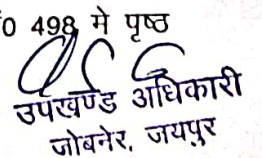 0 498 मे पृष्ठ
उपखण्ड अधिकारी
जोबनेर, जयपुर